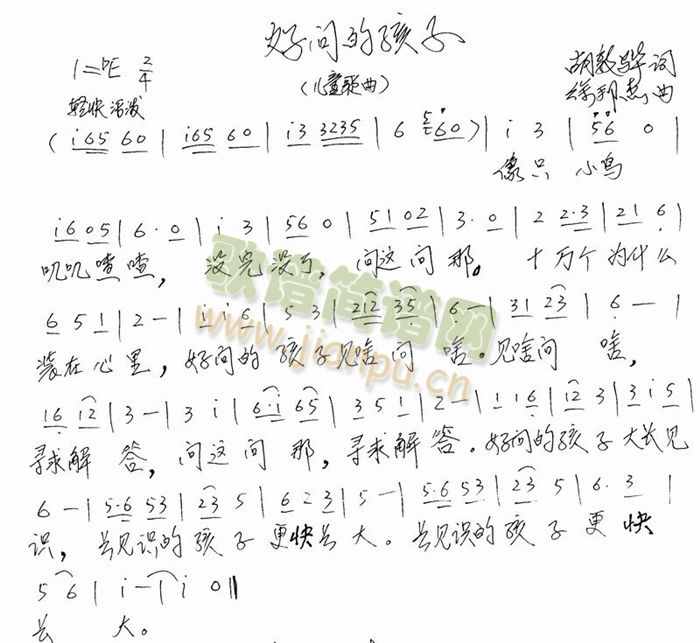 好问的孩子
1=ᵇE 2/4
(儿童歌曲)
胡敦骅 词
轻快 活泼
徐邦杰 曲
( i65 60 | i65 60 | i3 3235 | 6 5 60 ) | i 3 | 56 0 |
像只 小鸟
i605 | 6·0 | i 3 | 56 0 | 51 02 | 3·0 | 2 2·3 | 21 6 |
叽叽喳喳, 没完没了, 问这问那。 十万个为什么
6 5 1 | 2 - | 1 1 6 | 5 3 | 212 35 | 6 - | 31 23 | 6 - |
装在心里, 好问的孩子见啥问啥。见啥问啥,
16 12 | 3 - | 3 i | 6·i 65 | 3 5 1 | 2 - | 1 16 | 12 3 | 3 i 5 |
寻求解答, 问这问那, 寻求解答。好问的孩子大长见
6 - | 5·6 53 | 23 5 | 6 2 3 | 5 - | 5·6 53 | 23 5 | 6·3 |
识, 长见识的孩子更快长大。长见识的孩子更快
5 6 | i - | i 0 ‖
长大。
歌谱简谱网
www.jianpu.cn